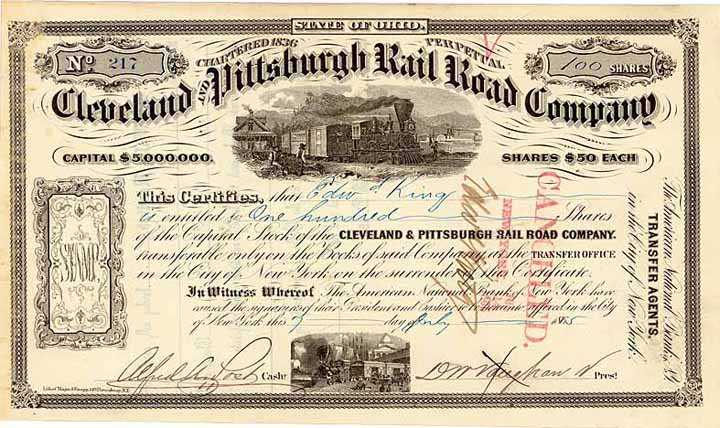 STATE OF OHIO.
CHARTERED 1836 PERPETUAL
No 217
100 SHARES
Cleveland AND Pittsburgh Rail Road Company
CAPITAL $5.000.000.
SHARES $50 EACH
This Certifies, that Edwd King
is entitled to One hundred Shares
of the Capital Stock of the CLEVELAND & PITTSBURGH RAIL ROAD COMPANY.
transferable only on the Books of said Company, at the TRANSFER OFFICE
in the City of New York on the surrender of this Certificate.
In Witness Whereof The American National Bank of New York have
caused the signatures of their President and Cashier to be hereunto affixed in the City
of New York this 7 day of July 1865
Cashr
Prest
STAMP
CANCELLED.
NEW YORK
The American National Bank
in the City of New York.
TRANSFER AGENTS.
Lith. of Major & Knapp, 449 Broadway, N.Y.